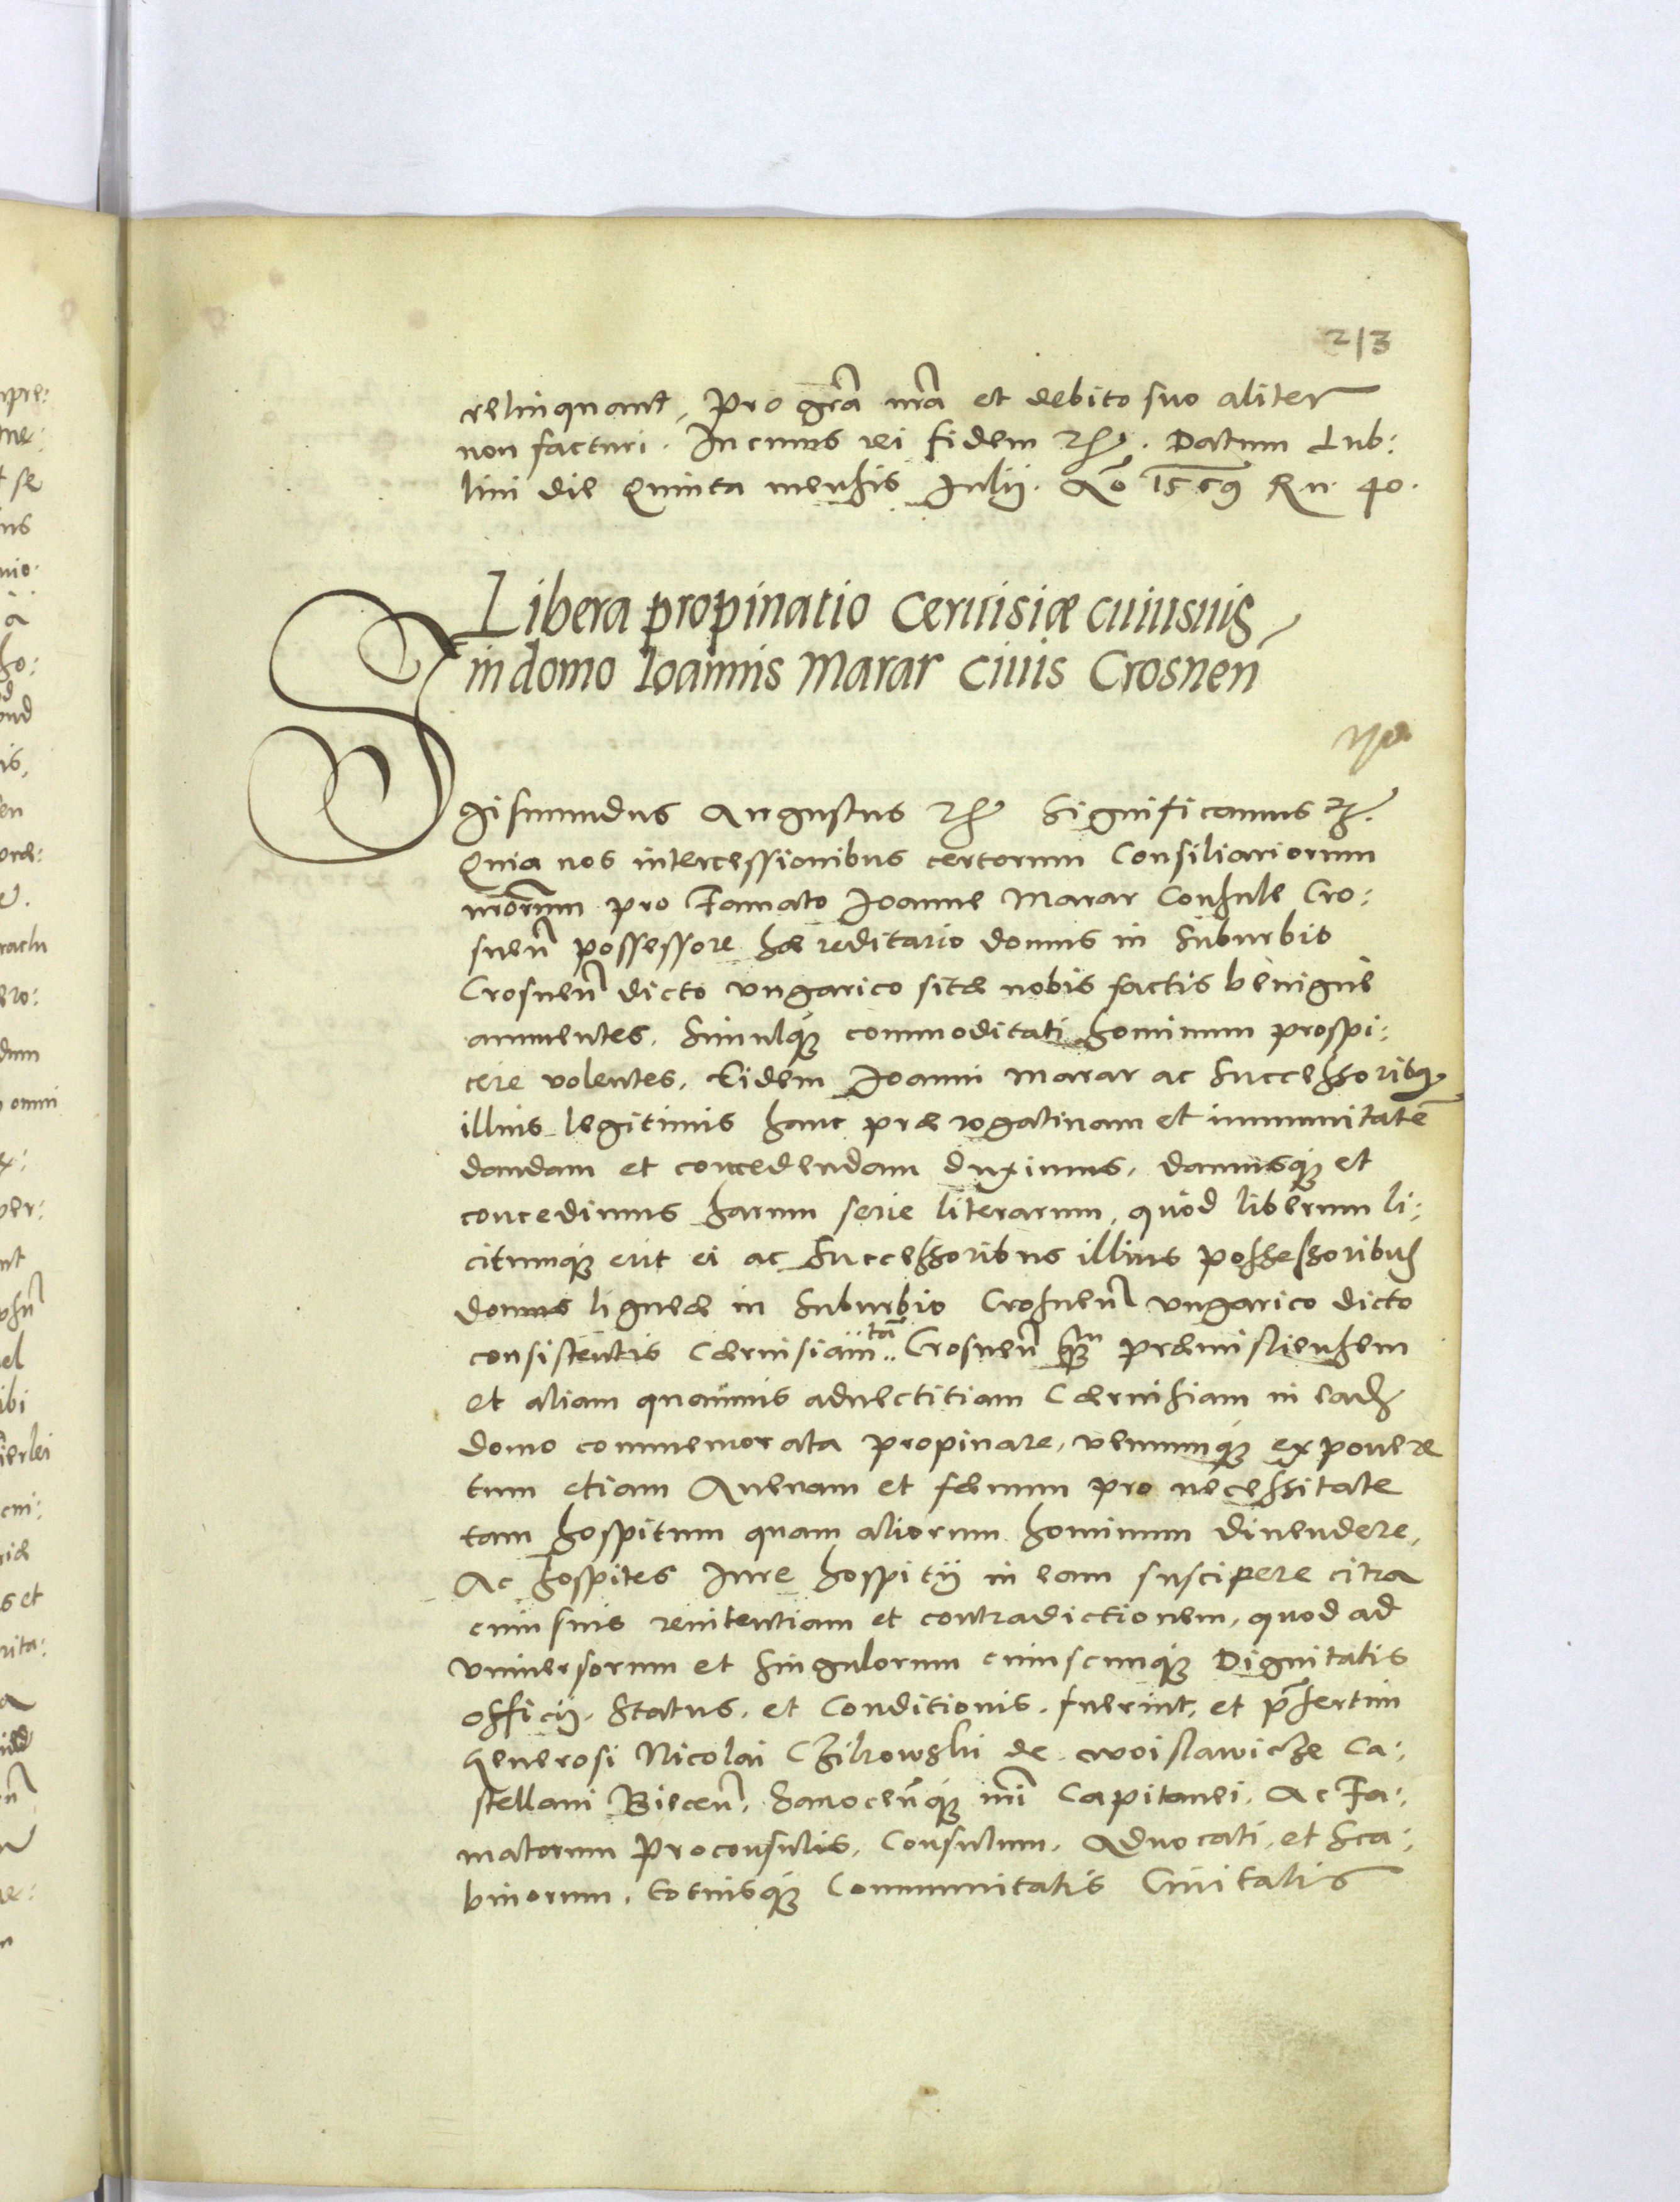 213
relinquant, pro gra͂ nra͂ et debito suo aliter
non facturi. In cuius rei fidem etc. Datum Lub:
lini die Quinta mensis Julij. Ao 1569 Rn. 40.
Libera propinatio Ceruisiæ cuiusuis
in domo Ioannis Marar Ciuis Crosnen
Sigismundus Augustus etc Significamus etc.
Quia nos intercessionibus certorum Consiliariorum
nrorum pro Famato Joanne Marar Consule Cro:
snen possessore hæreditario domus in Suburbio
Crosnen dicto vngarico sitæ nobis factis benigne
annuentes, Simulque commoditati hominum prospi:
cere volentes, Eidem Joanni Marar ac Successoribus
illius legitimis hanc prærogatiuam et immunitate͂
dandam et concedendam duximus, damusque et
concedimus harum serie literarum, quòd liberum li:
citumque erit ei ac Successoribus illius possessoribus
domus ligneæ in Suburbio Crosnen vngarico dicto
consistentis Cæruisiam ta͂ Crosnen quam Præmisliensem
et aliam quamuis aduectitiam Cæruisiam in ead
domo commemorata propinare, venumque exponere
tum etiam Auenam et fænum pro necessitate
tam hospitum quam aliorum hominum diuendere,
Ac hospites Jure hospitij in eam suscipere citra
cuiusuis renitentiam et contradictionem, quod ad
vniuersorum et Singulorum cuiuscunque Dignitatis
officij, Status, et Conditionis, fuerint, et pr͂sertim
Generosi Nicolai Czikowski de woislawicze Ca:
stellani Biecen, Sanocenque nri Capitanei, Ac Fa:
matorum Proconsulis, Consulum, Aduocati, et Sca:
binorum, totiusque Communitatis Ciuitatis